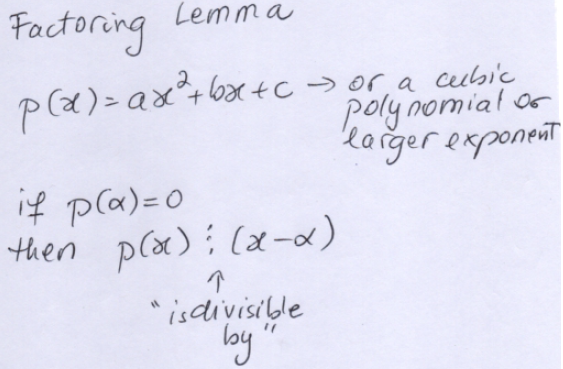 Factoring Lemma
p(x)=ax²+bx+c → or a cubic
polynomial or
larger exponent
if p(α)=0
then p(x) ⋮ (x-α)
↑
"is divisible
by"